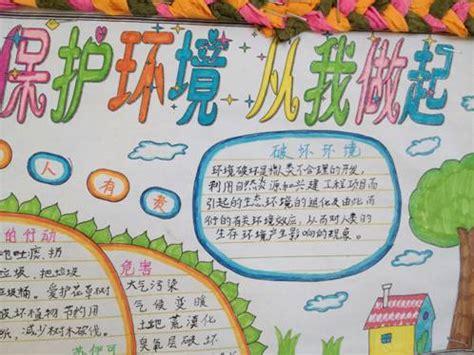 保护环境 从我做起
人 有 责
破坏环境
环境破坏是指人类不合理的开发,
利用自然资源和兴建工程项目而
引起的生态环境的退化及由此而
衍的有关环境效应,从而对人类的
生存环境产生影响的现象。
的行动
吐痰,扔
垃圾,把垃圾
垃圾桶。爱护花草树
破坏植物节约用
纸,减少树木砍伐。
危害
大气污染
气候变暖
土地荒漠化
臭氧层破坏